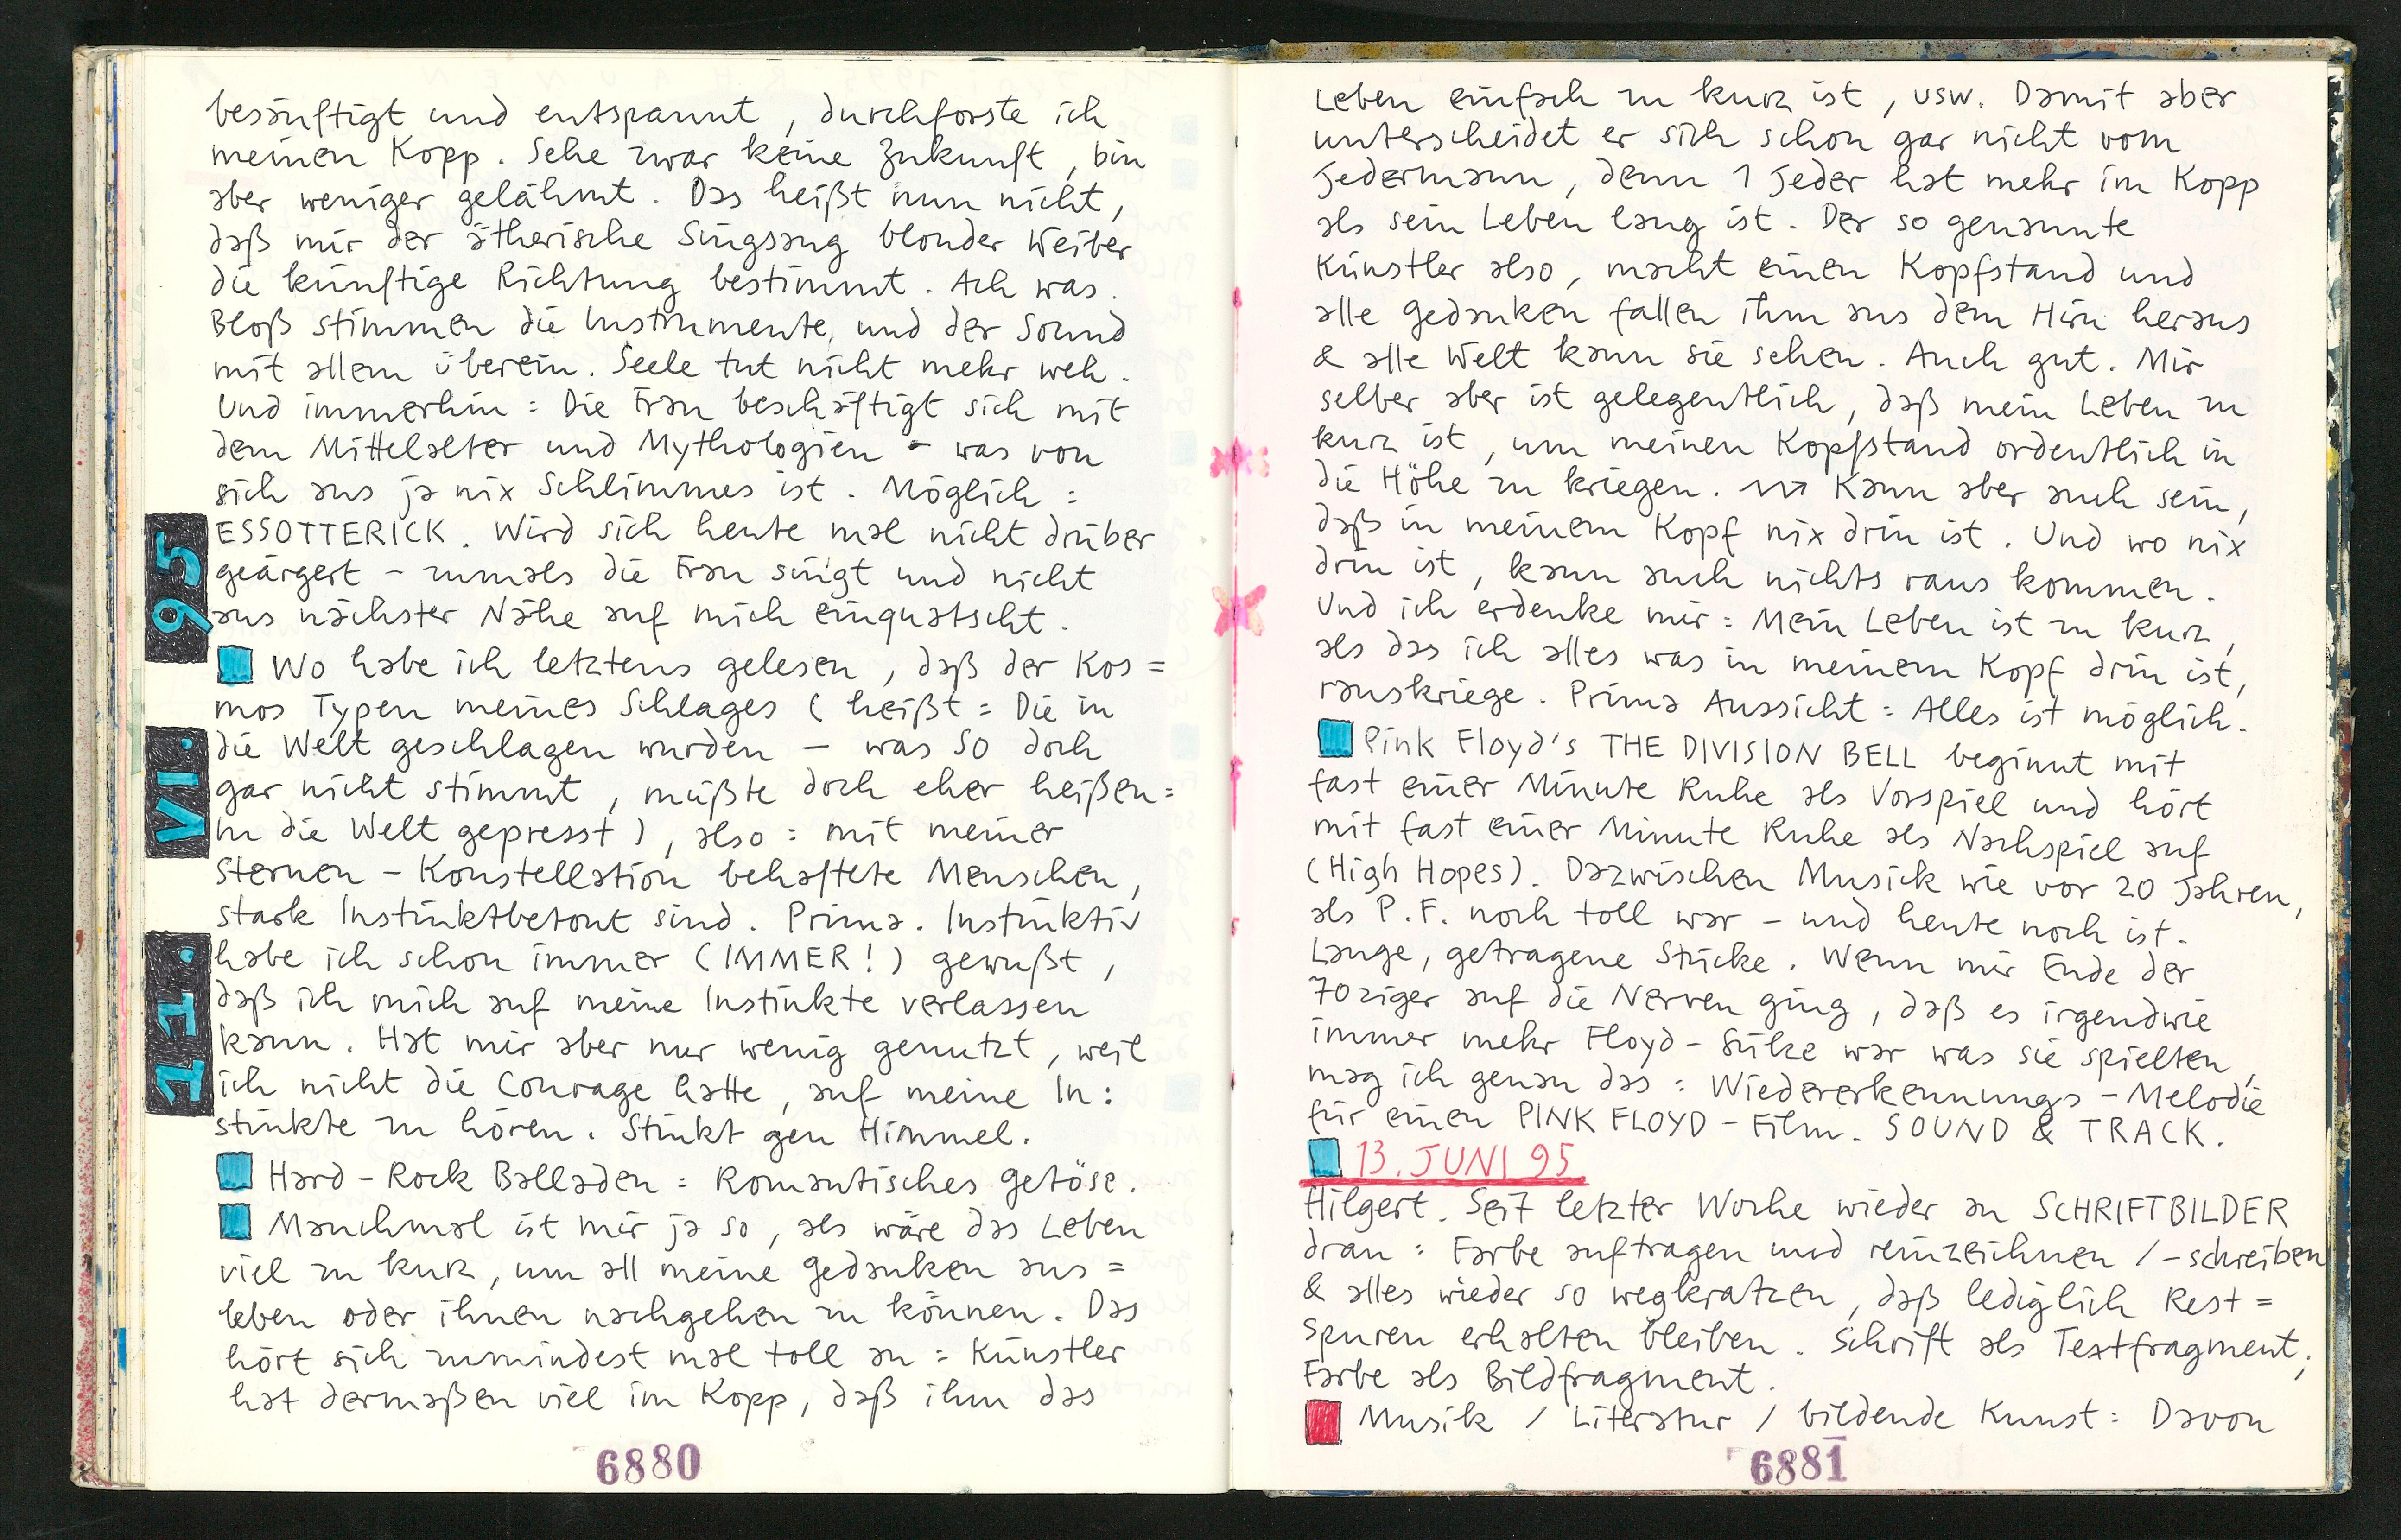 besänftigt und entspannt, durchforste ich
meinen Kopp. Sehe zwar keine Zukunft, bin
aber weniger gelähmt. Das heißt nun nicht,
daß mir der ätherische Singsang blonder Weiber
die künftige Richtung bestimmt. Ach was.
Bloß stimmen die Instrumente, und der Sound
mit allem überein. Seele tut nicht mehr weh.
Und immerhin: Die Frau beschäftigt sich mit
dem Mittelalter und Mythologien - was von
sich aus ja nix Schlimmes ist. Möglich:
ESSOTTERICK. Wird sich heute mal nicht drüber
geärgert - zumals die Frau singt und nicht
aus nächster Nähe auf mich einquatscht.
Wo habe ich letztens gelesen, daß der Kos=
mos Typen meines Schlages (heißt: Die in
die Welt geschlagen wurden - was SO doch
gar nicht stimmt, müßte doch eher heißen:
In die Welt gepresst), also: mit meiner
Sternen-Konstellation behaftete Menschen,
stark Instinktbetont sind. Prima. Instinktiv
habe ich schon immer (IMMER!) gewußt,
daß ich mich auf meine Instinkte verlassen
kann. Hat mir aber nur wenig genutzt, weil
ich nicht die Courage hatte, auf meine In:
stinkte zu hören. Stinkt gen Himmel.
Hard-Rock Balladen: Romantisches Getöse.
Manchmal ist mir ja so, als wäre das Leben
viel zu kurz, um all meine Gedanken aus=
leben oder ihnen nachgehen zu können. Das
hört sich zumindest mal toll an: Künstler
hat dermaßen viel im Kopp, daß ihm das
11. VI. 95
6880
Leben einfach zu kurz ist, usw. Damit aber
unterscheidet er sich schon gar nicht vom
Jedermann, denn 1 Jeder hat mehr im Kopp
als sein Leben lang ist. Der so genannte
Künstler also, macht einen Kopfstand und
alle Gedanken fallen ihm aus dem Hirn heraus
& alle Welt kann sie sehen. Auch gut. Mir
selber aber ist gelegentlich, daß mein Leben zu
kurz ist, um meinen Kopfstand ordentlich in
die Höhe zu kriegen. Kann aber auch sein,
daß in meinem Kopf nix drin ist. Und wo nix
drin ist, kann auch nichts raus kommen.
Und ich erdenke mir: Mein Leben ist zu kurz,
als das ich alles was in meinem Kopf drin ist,
rauskriege. Prima Aussicht: Alles ist möglich.
Pink Floyd's THE DIVISION BELL beginnt mit
fast einer Minute Ruhe als Vorspiel und hört
mit fast einer Minute Ruhe als Nachspiel auf
(High Hopes). Dazwischen Musick wie vor 20 Jahren,
als P.F. noch toll war - und heute noch ist.
Lange, getragene Stücke. Wenn mir Ende der
70ziger auf die Nerven ging, daß es irgendwie
immer mehr Floyd-Sülze war was sie spielten,
mag ich genau das: Wiedererkennungs-Melodie
für einen PINK FLOYD-Film. SOUND & TRACK.
13. JUNI 95
Hilgert. Seit letzter Woche wieder an SCHRIFTBILDER
dran: Farbe auftragen und reinzeichnen /-schreiben
& alles wieder so wegkratzen, daß lediglich Rest=
spuren erhalten bleiben. Schrift als Textfragment,
Farbe als Bildfragment.
Musik / Literatur / bildende Kunst: Davon
6881